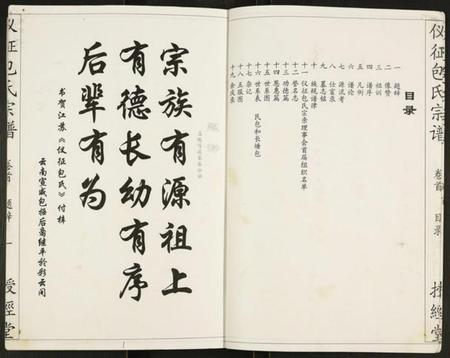 仪征包氏宗谱
卷首
目录
授经堂
目录
一 题辞
二 像赞
三 祖训
四 谱序
五 凡例
六 谱论
七 源流考
八 仕宦录
九 墓志铭
十 族规谱律
十一 仪征包氏宗亲理事会首届组织名单
十二 登名志
十三 功德篇
十四 恩惠篇
十五 世系图
十六 世系表 民包和长塘包
十七 杂记
十八 五服图
十九 余庆录
宗族有源祖上
有德长幼有序
后辈有为
书贺江苏《仪征包氏》付梓
云南宣威包揚后裔继平於彩云间
仪征包氏宗谱
卷首
题辞
一
授经堂